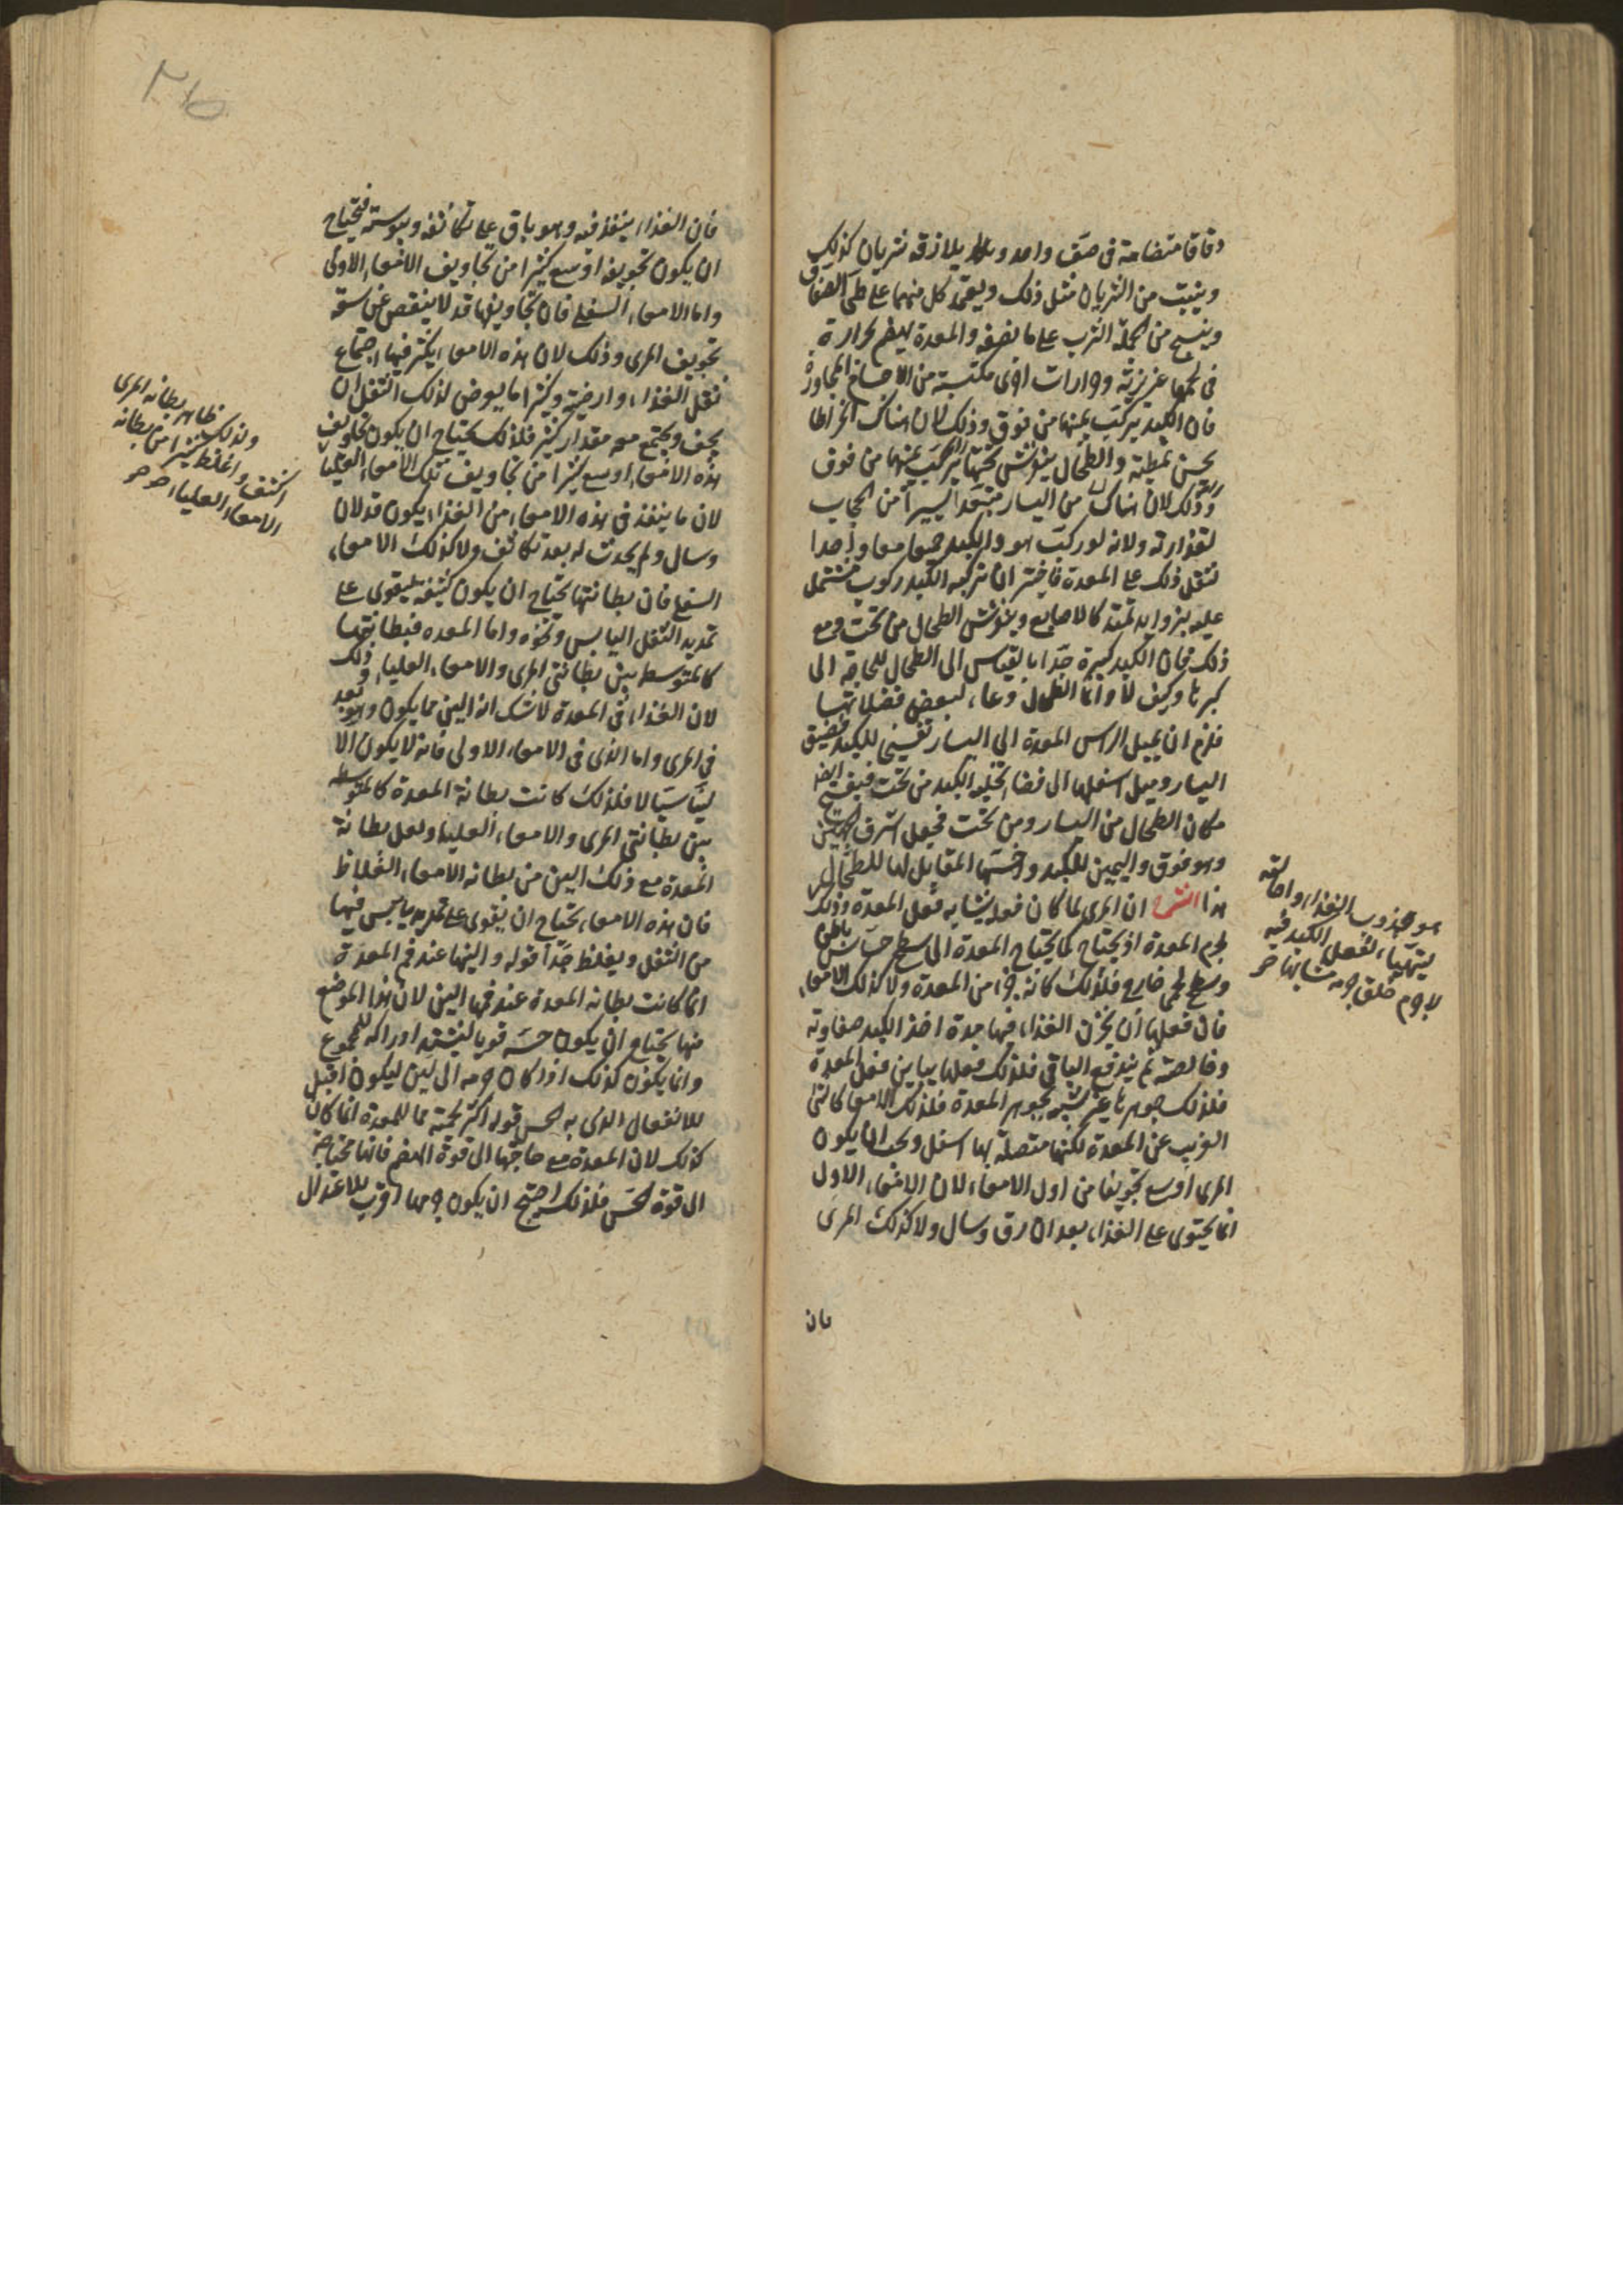 دقاقا متضامة فى صف واحد ويلازقه شريان كذلك
وينبت من الشريان مثل ذلك ويعتمد كل منهما على طى الصفاق
وينسج من الجملة الثرب على ما نصفه والمعدة يهضم بحرارة
فى لحمها غريزية وحرارات اخرى مكتسبة من الاجسام المجاورة
فان الكبد يركب يمينها من فوق وذلك لان هناك انخراطا
يحسن تمطيه والطحال ينفرش تحتها من فوق
وذلك لان هناك من اليسار متبعدا يسيرا من الحجاب
لقذارته ولانه لو ركب هو والكبد جميعا معا واحدا
لثقل ذلك على المعدة فاختير ان تركبه الكبد ركوب مشتمل
عليه بزوايد تمتد كالاصابع وينفرش الطحال من تحت ومع
ذلك فان الكبد كبيرة جدا بالقياس الى الطحال للحاجة الى
كبرها وكيف لا وانما الطحال وعاء لبعض فضلاتها
فلزم ان يميل الراس المعدة الى اليسار تفسيحا للكبد فضيق
اليسار وميل اسفلها الى فضاء تخليه الكبد من تحت فيفسح ايضا
مكان الطحال من اليسار ومن تحت فجعل اشرف الجهتين
وهو فوق واليمين للكبد واخسهما المقابل لهما للطحال
هذا الشرح ان المرى لما كان فعله يشابه فعل المعدة وذلك
لجرم المعدة اذ يحتاج كما يحتاج المعدة الى سطح حساس باطن
وسطح لحمى خارج فلذلك كانه جزء من المعدة ولا كذلك الامعاء
فان فعلها ان يخزن الغذاء فيها مدة اخذ الكبد صفاوته
وخالصته ثم يندفع الباقى فلذلك فعلها يباين فعل المعدة
فلذلك جوهرها غير شبيه بجوهر المعدة فلذلك الامعا كالشى
الغريب عن المعدة لكنها متصلة بها اسفل ويجب ان يكون
المرى اوسع تجويفا من اول الامعاء لان الامعاء الاول
انما يحتوى على الغذاء بعد ان رق وسال ولا كذلك المرى
هو جذب الغذاء واحالته
ليتهيا لفعل الكبد فيه
لا جرم خلق جرمه مشابها
فان
فان الغذاء ينفذ فيه وهو باق على تكاثفه ويبوسته فيحتاج
ان يكون تجويفه اوسع كثيرا من تجاويف الامعاء الاولى
واما الامعاء السفلى فان تجاويفها قد لا ينقص عن سعة
تجويف المرى وذلك لان هذه الامعاء يكثر فيها اجتماع
ثفل الغذاء وارضيته وكثيرا ما يعرض لذلك الثفل ان
يجف ويجتمع معه مقدار كثير فلذلك يحتاج ان يكون تجاويف
هذه الامعاء اوسع كثيرا من تجاويف تلك الامعاء العليا
لان ما ينفذ فى هذه الامعاء من الغذاء يكون قد لان
وسال ولم يحدث له بعد تكاثف ولا كذلك الامعاء
السفلى فان بطانتها تحتاج ان يكون كثيفة ليقوى على
تمديد الثفل اليابس ونحوه واما المعده فبطانتها
كالمتوسط بين بطانتى المرى والامعاء العليا وذلك
لان الغذاء فى المعدة لا شك انه الين مما يكون وهو بعد
فى المرى واما الذى فى الامعاء الاولى فانه لا يكون الا
لينا سيالا فلذلك كانت بطانة المعدة كالمتوسطه
بين بطانتى المرى والامعاء العليا ولعل بطانة
المعدة مع ذلك الين من بطانه الامعاء الغلاظ
فان هذه الامعاء يحتاج ان يقوى على تمديد ما يحتبس فيها
من الثفل ويغلظ جدا قوله والينها عند فم المعدة
انما كانت بطانه المعدة عند فمها الين لان هذا الموضع
منها يحتاج ان يكون حسه قويا ليشتد ادراكه للجوع
وانما يكون كذلك اذا كان جرمه الى لين ليكون اقبل
للانفعال الذى به الحس قوله اكثر لحمية مما للمعدة انما كان
كذلك لان المعدة مع حاجتها الى قوة الهضم فانها محتاجة
الى قوة الحس فلذلك احتيج ان يكون جرمها اقرب للاعتدال
ولذلك ظاهر بطانه المرى
اكثف واغلظ كثيرا من بطانه
الامعاء العليا